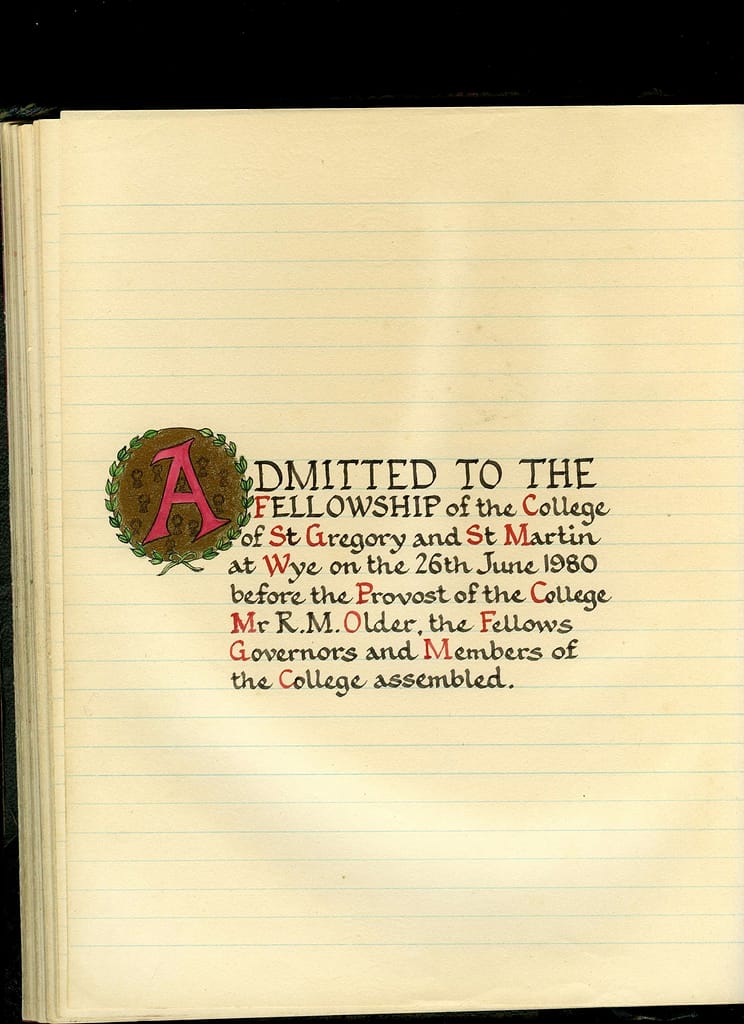 ADMITTED TO THE
FELLOWSHIP of the College
of St Gregory and St Martin
at Wye on the 26th June 1980
before the Provost of the College
Mr R.M. Older, the Fellows
Governors and Members of
the College assembled.